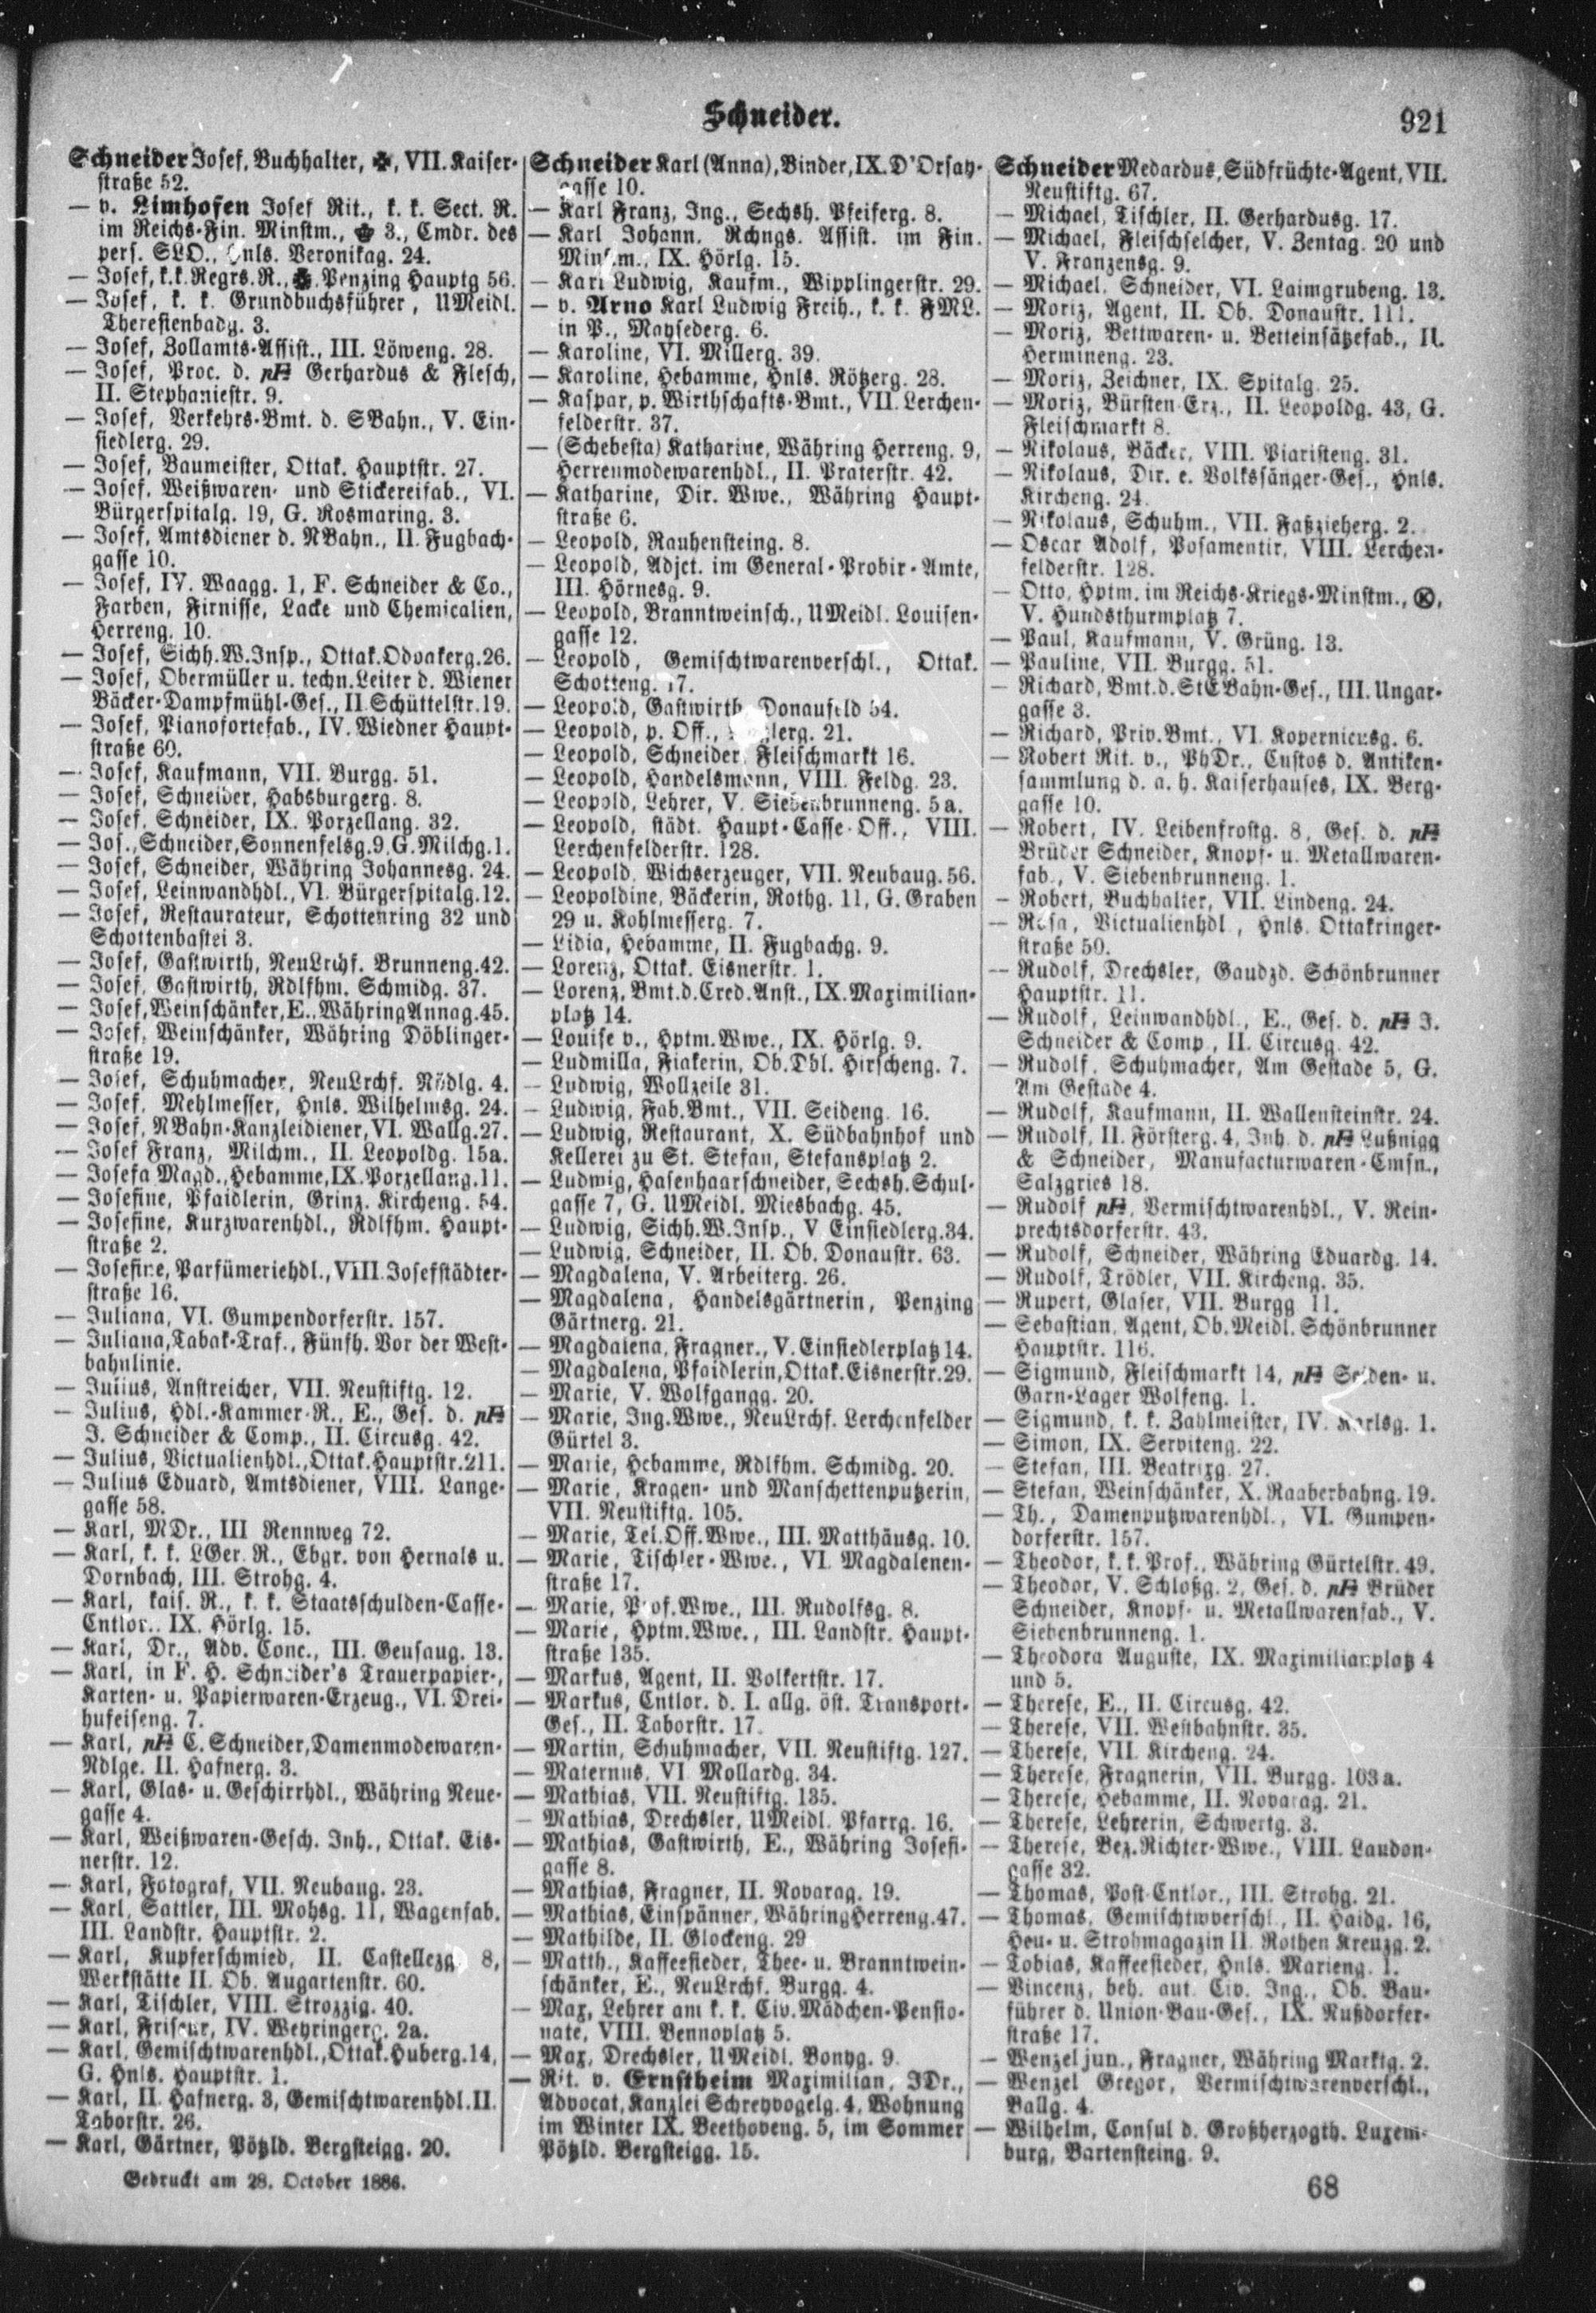 Schneider.
921
Schneider Josef, Buchhalter, ✠, VII. Kaiser-
straße 52.
— v. Limhofen Josef Rit., k. k. Sect. R.
im Reichs-Fin. Minstm., 3., Cmdr. des
pers. SLO., Hnls. Veronikag. 24.
— Josef, k.k. Regrs. R., Penzing Hauptg 56.
— Josef, k. k. Grundbuchsführer, UMeidl.
Theresienbadg. 3.
— Josef, Zollamts-Assist., III. Löweng. 28.
— Josef, Proc. d. pH Gerhardus & Flesch,
II. Stephaniestr. 9.
— Josef, Verkehrs-Bmt. d. SBahn., V. Ein-
siedlerg. 29.
— Josef, Baumeister, Ottak. Hauptstr. 27.
— Josef, Weißwaren- und Stickereifab., VI.
Bürgerspitalg. 19, G. Rosmaring. 3.
— Josef, Amtsdiener d. NBahn., II. Fugbach-
gasse 10.
— Josef, IV. Waagg. 1, F. Schneider & Co.,
Farben, Firnisse, Lacke und Chemicalien,
Herreng. 10.
— Josef, Sichh.W.Insp., Ottak.Odoakerg.26.
— Josef, Obermüller u. techn. Leiter d. Wiener
Bäcker-Dampfmühl-Ges., II. Schüttelstr. 19.
— Josef, Pianofortefab., IV. Wiedner Haupt-
straße 60.
— Josef, Kaufmann, VII. Burgg. 51.
— Josef, Schneider, Habsburgerg. 8.
— Josef, Schneider, IX. Porzellang. 32.
— Jos., Schneider, Sonnenfelsg. 9, G. Milchg. 1.
— Josef, Schneider, Währing Johannesg. 24.
— Josef, Leinwandhdl., VI. Bürgerspitalg. 12.
— Josef, Restaurateur, Schottenring 32 und
Schottenbastei 3.
— Josef, Gastwirth, NeuLrchf. Brunneng. 42.
— Josef, Gastwirth, Rdlfhm. Schmidg. 37.
— Josef, Weinschänker, E., Währing Annag. 45.
— Josef, Weinschänker, Währing Döblinger-
straße 19.
— Josef, Schuhmacher, NeuLrchf. Rödlg. 4.
— Josef, Mehlmesser, Hnls. Wilhelmsg. 24.
— Josef, NBahn-Kanzleidiener, VI. Wallg. 27.
— Josef Franz, Milchm., II. Leopoldg. 15a.
— Josefa Magd., Hebamme, IX. Porzellang. 11.
— Josefine, Pfaidlerin, Grinz. Kircheng. 54.
— Josefine, Kurzwarenhdl., Rdlfhm. Haupt-
straße 2.
— Josefine, Parfümeriehdl., VIII. Josefstädter-
straße 16.
— Juliana, VI. Gumpendorferstr. 157.
— Juliana, Tabak-Traf., Fünfh. Vor der West-
bahnlinie.
— Julius, Anstreicher, VII. Neustiftg. 12.
— Julius, Hdl.-Kammer-R., E., Ges. d. pH
J. Schneider & Comp., II. Circusg. 42.
— Julius, Victualienhdl., Ottak. Hauptstr. 211.
— Julius Eduard, Amtsdiener, VIII. Lange-
gasse 58.
— Karl, MDr., III Rennweg 72.
— Karl, k. k. LGer. R., Ebgr. von Hernals u.
Dornbach, III. Strohg. 4.
— Karl, kais. R., k. k. Staatsschulden-Casse-
Cntlor., IX. Hörlg. 15.
— Karl, Dr., Adv. Conc., III. Geusaug. 13.
— Karl, in F. H. Schneider's Trauerpapier-,
Karten- u. Papierwaren-Erzeug., VI. Drei-
hufeiseng. 7.
— Karl, pH C. Schneider, Damenmodewaren-
Ndlge. II. Hafnerg. 3.
— Karl, Glas- u. Geschirrhdl., Währing Neue-
gasse 4.
— Karl, Weißwaren-Gesch. Inh., Ottak. Eis-
nerstr. 12.
— Karl, Fotograf, VII. Neubaug. 23.
— Karl, Sattler, III. Mohsg. 11, Wagenfab.
III. Landstr. Hauptstr. 2.
— Karl, Kupferschmied, II. Castellezg. 8,
Werkstätte II. Ob. Augartenstr. 60.
— Karl, Tischler, VIII. Strozzig. 40.
— Karl, Friseur, IV. Weyringerg. 2a.
— Karl, Gemischtwarenhdl., Ottak. Huberg. 14,
G. Hnls. Hauptstr. 1.
— Karl, II. Hafnerg. 3, Gemischtwarenhdl. II.
Taborstr. 26.
— Karl, Gärtner, Pötzld. Bergsteigg. 20.
Gedruckt am 28. October 1886.
Schneider Karl (Anna), Binder, IX. D'Orsay-
gasse 10.
— Karl Franz, Ing., Sechsh. Pfeiferg. 8.
— Karl Johann, Rchngs. Assist. im Fin.
Minstm., IX. Hörlg. 15.
— Karl Ludwig, Kaufm., Wipplingerstr. 29.
— v. Arno Karl Ludwig Freih., k. k. FML.
in P., Maysederg. 6.
— Karoline, VI. Millerg. 39.
— Karoline, Hebamme, Hnls. Rötzerg. 28.
— Kaspar, p. Wirthschafts-Bmt., VII. Lerchen-
felderstr. 37.
— (Schebesta) Katharine, Währing Herreng. 9,
Herrenmodewarenhdl., II. Praterstr. 42.
— Katharine, Dir. Wwe., Währing Haupt-
straße 6.
— Leopold, Rauhensteing. 8.
— Leopold, Adjct. im General-Probir-Amte,
III. Hörnesg. 9.
— Leopold, Branntweinsch., UMeidl. Louisen-
gasse 12.
— Leopold, Gemischtwarenverschl., Ottak.
Schotteng. 17.
— Leopold, Gastwirth, Donaufeld 54.
— Leopold, p. Off., 21.
— Leopold, Schneider, Fleischmarkt 16.
— Leopold, Handelsmann, VIII. Feldg. 23.
— Leopold, Lehrer, V. Siebenbrunneng. 5a.
— Leopold, städt. Haupt-Casse-Off., VIII.
Lerchenfelderstr. 128.
— Leopold, Wichserzeuger, VII. Neubaug. 56.
— Leopoldine, Bäckerin, Rothg. 11, G. Graben
29 u. Kohlmesserg. 7.
— Lidia, Hebamme, II. Fugbachg. 9.
— Lorenz, Ottak. Eisnerstr. 1.
— Lorenz, Bmt. d. Cred. Anst., IX. Maximilian-
platz 14.
— Louise v., Hptm. Wwe., IX. Hörlg. 9.
— Ludmilla, Fiakerin, Ob. Dbl. Hirscheng. 7.
— Ludwig, Wollzeile 31.
— Ludwig, Fab. Bmt., VII. Seideng. 16.
— Ludwig, Restaurant, X. Südbahnhof und
Kellerei zu St. Stefan, Stefansplatz 2.
— Ludwig, Hasenhaarschneider, Sechsh. Schul-
gasse 7, G. UMeidl. Miesbachg. 45.
— Ludwig, Sichh.W.Insp., V Einsiedlerg. 34.
— Ludwig, Schneider, II. Ob. Donaustr. 63.
— Magdalena, V. Arbeiterg. 26.
— Magdalena, Handelsgärtnerin, Penzing
Gärtnerg. 21.
— Magdalena, Fragner., V. Einsiedlerplatz 14.
— Magdalena, Pfaidlerin, Ottak. Eisnerstr. 29.
— Marie, V. Wolfgangg. 20.
— Marie, Ing. Wwe., NeuLrchf. Lerchenfelder
Gürtel 3.
— Marie, Hebamme, Rdlfhm. Schmidg. 20.
— Marie, Kragen- und Manschettenputzerin,
VII. Neustiftg. 105.
— Marie, Tel. Off. Wwe., III. Matthäusg. 10.
— Marie, Tischler-Wwe., VI. Magdalenen-
straße 17.
— Marie, Prof. Wwe., III. Rudolfsg. 8.
— Marie, Hptm. Wwe., III. Landstr. Haupt-
straße 135.
— Markus, Agent, II. Volkertstr. 17.
— Markus, Cntlor. d. I. allg. öst. Transport-
Ges., II. Taborstr. 17.
— Martin, Schuhmacher, VII. Neustiftg. 127.
— Maternus, VI. Mollardg. 34.
— Mathias, VII. Neustiftg. 135.
— Mathias, Drechsler, UMeidl. Pfarrg. 16.
— Mathias, Gastwirth, E., Währing Josefi-
gasse 8.
— Mathias, Fragner, II. Novarag. 19.
— Mathias, Einspänner, Währing Herreng. 47.
— Mathilde, II. Glockeng. 29
— Matth., Kaffeesieder, Thee- u. Branntwein-
schänker, E., NeuLrchf. Burgg. 4.
— Max, Lehrer am k. k. Civ. Mädchen-Pensio-
nate, VIII. Bennoplatz 5.
— Max, Drechsler, UMeidl. Bonyg. 9.
— Rit. v. Ernstheim Maximilian, JDr.,
Advocat, Kanzlei Schreyvogelg. 4, Wohnung
im Winter IX. Beethoveng. 5, im Sommer
Pötzld. Bergsteigg. 15.
Schneider Medardus, Südfrüchte-Agent, VII.
Neustiftg. 67.
— Michael, Tischler, II. Gerhardusg. 17.
— Michael, Fleischselcher, V. Zentag. 20 und
V. Franzensg. 9.
— Michael, Schneider, VI. Laimgrubeng. 13.
— Moriz, Agent, II. Ob. Donaustr. 111.
— Moriz, Bettwaren- u. Betteinsätzefab., II.
Hermineng. 23.
— Moriz, Zeichner, IX. Spitalg. 25.
— Moriz, Bürsten-Erz., II. Leopoldg. 43, G.
Fleischmarkt 8.
— Nikolaus, Bäcker, VIII. Piaristeng. 31.
— Nikolaus, Dir. e. Volkssänger-Ges., Hnls.
Kircheng. 24.
— Nikolaus, Schuhm., VII. Faßzieherg. 2.
— Oscar Adolf, Posamentir, VIII. Lerchen-
felderstr. 128.
— Otto, Hptm. im Reichs-Kriegs-Minstm., Ⓚ,
V. Hundsthurmplatz 7.
— Paul, Kaufmann, V. Grüng. 13.
— Pauline, VII. Burgg. 51.
— Richard, Bmt. d. StEBahn-Ges., III. Ungar-
gasse 3.
— Richard, Priv. Bmt., VI. Kopernicusg. 6.
— Robert Rit. v., PhDr., Custos d. Antiken-
sammlung d. a. h. Kaiserhauses, IX. Berg-
gasse 10.
— Robert, IV. Leibenfrostg. 8, Ges. d. pH
Brüder Schneider, Knopf- u. Metallwaren-
fab., V. Siebenbrunneng. 1.
— Robert, Buchhalter, VII. Lindeng. 24.
— Rosa, Victualienhdl., Hnls. Ottakringer-
straße 50.
— Rudolf, Drechsler, Gaudzd. Schönbrunner
Hauptstr. 11.
— Rudolf, Leinwandhdl., E., Ges. d. pH J.
Schneider & Comp., II. Circusg. 42.
— Rudolf, Schuhmacher, Am Gestade 5, G.
Am Gestade 4.
— Rudolf, Kaufmann, II. Wallensteinstr. 24.
— Rudolf, II. Försterg. 4, Inh. d. pH Lußnigg
& Schneider, Manufacturwaren-Cmsn.,
Salzgries 18.
— Rudolf pH, Vermischtwarenhdl., V. Rein-
prechtsdorferstr. 43.
— Rudolf, Schneider, Währing Eduardg. 14.
— Rudolf, Trödler, VII. Kircheng. 35.
— Rupert, Glaser, VII. Burgg 11.
— Sebastian, Agent, Ob. Meidl. Schönbrunner
Hauptstr. 116.
— Sigmund, Fleischmarkt 14, pH Seiden- u.
Garn-Lager Wolfeng. 1.
— Sigmund, k. k. Zahlmeister, IV. Karlsg. 1.
— Simon, IX. Serviteng. 22.
— Stefan, III. Beatrixg. 27.
— Stefan, Weinschänker, X. Raaberbahng. 19.
— Th., Damenputzwarenhdl., VI. Gumpen-
dorferstr. 157.
— Theodor, k. k. Prof., Währing Gürtelstr. 49.
— Theodor, V. Schloßg. 2, Ges. d. pH Brüder
Schneider, Knopf- u. Metallwarenfab., V.
Siebenbrunneng. 1.
— Theodora Auguste, IX. Maximilianplatz 4
und 5.
— Therese, E., II. Circusg. 42.
— Therese, VII. Westbahnstr. 35.
— Therese, VII. Kircheng. 24.
— Therese, Fragnerin, VII. Burgg. 103a.
— Therese, Hebamme, II. Novarag. 21.
— Therese, Lehrerin, Schwertg. 3.
— Therese, Bez. Richter-Wwe., VIII. Laudon-
gasse 32.
— Thomas, Post-Cntlor., III. Strohg. 21.
— Thomas, Gemischtwverschl., II. Haidg. 16,
Heu- u. Strohmagazin II. Rothen Kreuzg. 2.
— Tobias, Kaffeesieder, Hnls. Marieng. 1.
— Vincenz, beh. aut. Civ. Ing., Ob. Bau-
führer d. Union-Bau-Ges., IX. Nußdorfer-
straße 17.
— Wenzel jun., Fragner, Währing Marktg. 2.
— Wenzel Gregor, Vermischtwarenverschl.,
Ballg. 4.
— Wilhelm, Consul d. Großherzogth. Luxem-
burg, Bartensteing. 9.
68